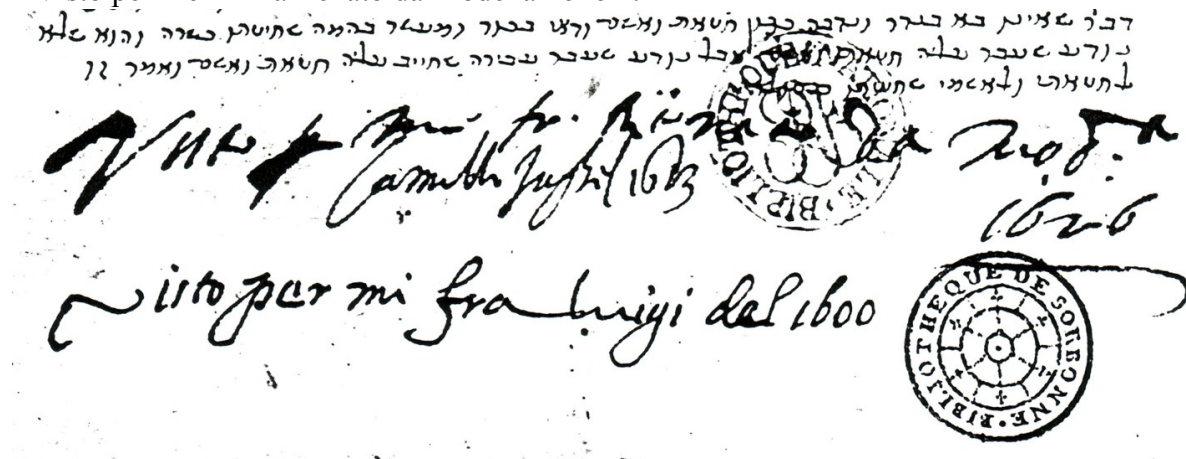 דבר שאינו בא בנדר ונדבה כגון חטאת ואשם ודאי בכור ומעשר בהמה שחיטתן כשרה והוא שלא
נודע שעבר עליה חטאת אבל נודע שעבר עבירה שחייב עליה חטאת ואשם ואמר זו
לחטאתי ולאשמי
Visto p mi fr. Renato da Mod.a
Camillo Jaghel 1613
1626
Visto per mi fra Luigi del 1600
BIBLIOTHEQUE DE SORBONNE